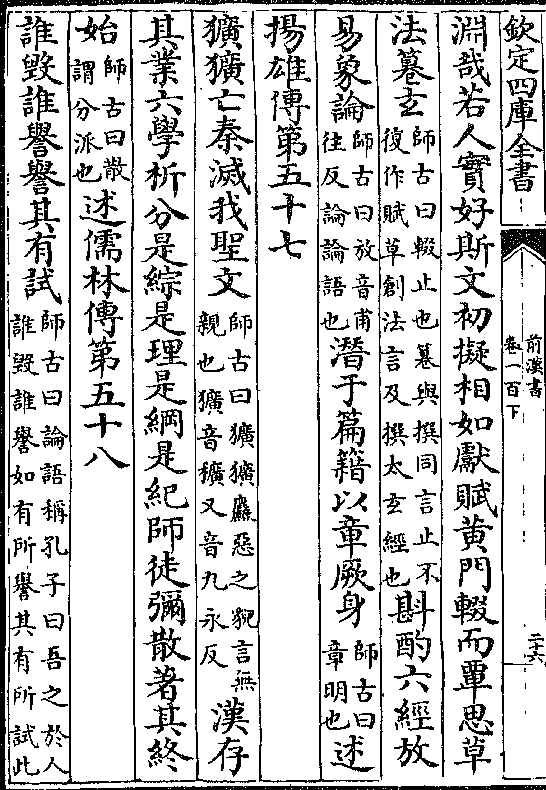 欽定四庫全書
前漢書
卷一百下
二十六
淵哉若人實好斯文初擬相如獻賦黄門輟而覃思草
法篹玄師古曰輟止也篹與撰同言止不
復作賦草創法言及撰太玄經也斟酌六經放
易象論師古曰放音甫
往反論論語也潜于篇籍以章厥身師古曰
章明也述
揚雄傳第五十七
獷獷亡秦滅我聖文師古曰獷獷麤惡之貌言無
親也獷音穬又音九永反漢存
其業六學析分是綜是理是綱是紀師徒彌散著其終
始師古曰散
謂分派也述儒林傳第五十八
誰毁誰譽譽其有試師古曰論語稱孔子曰吾之於人
誰毁誰譽如有所譽其有所試此